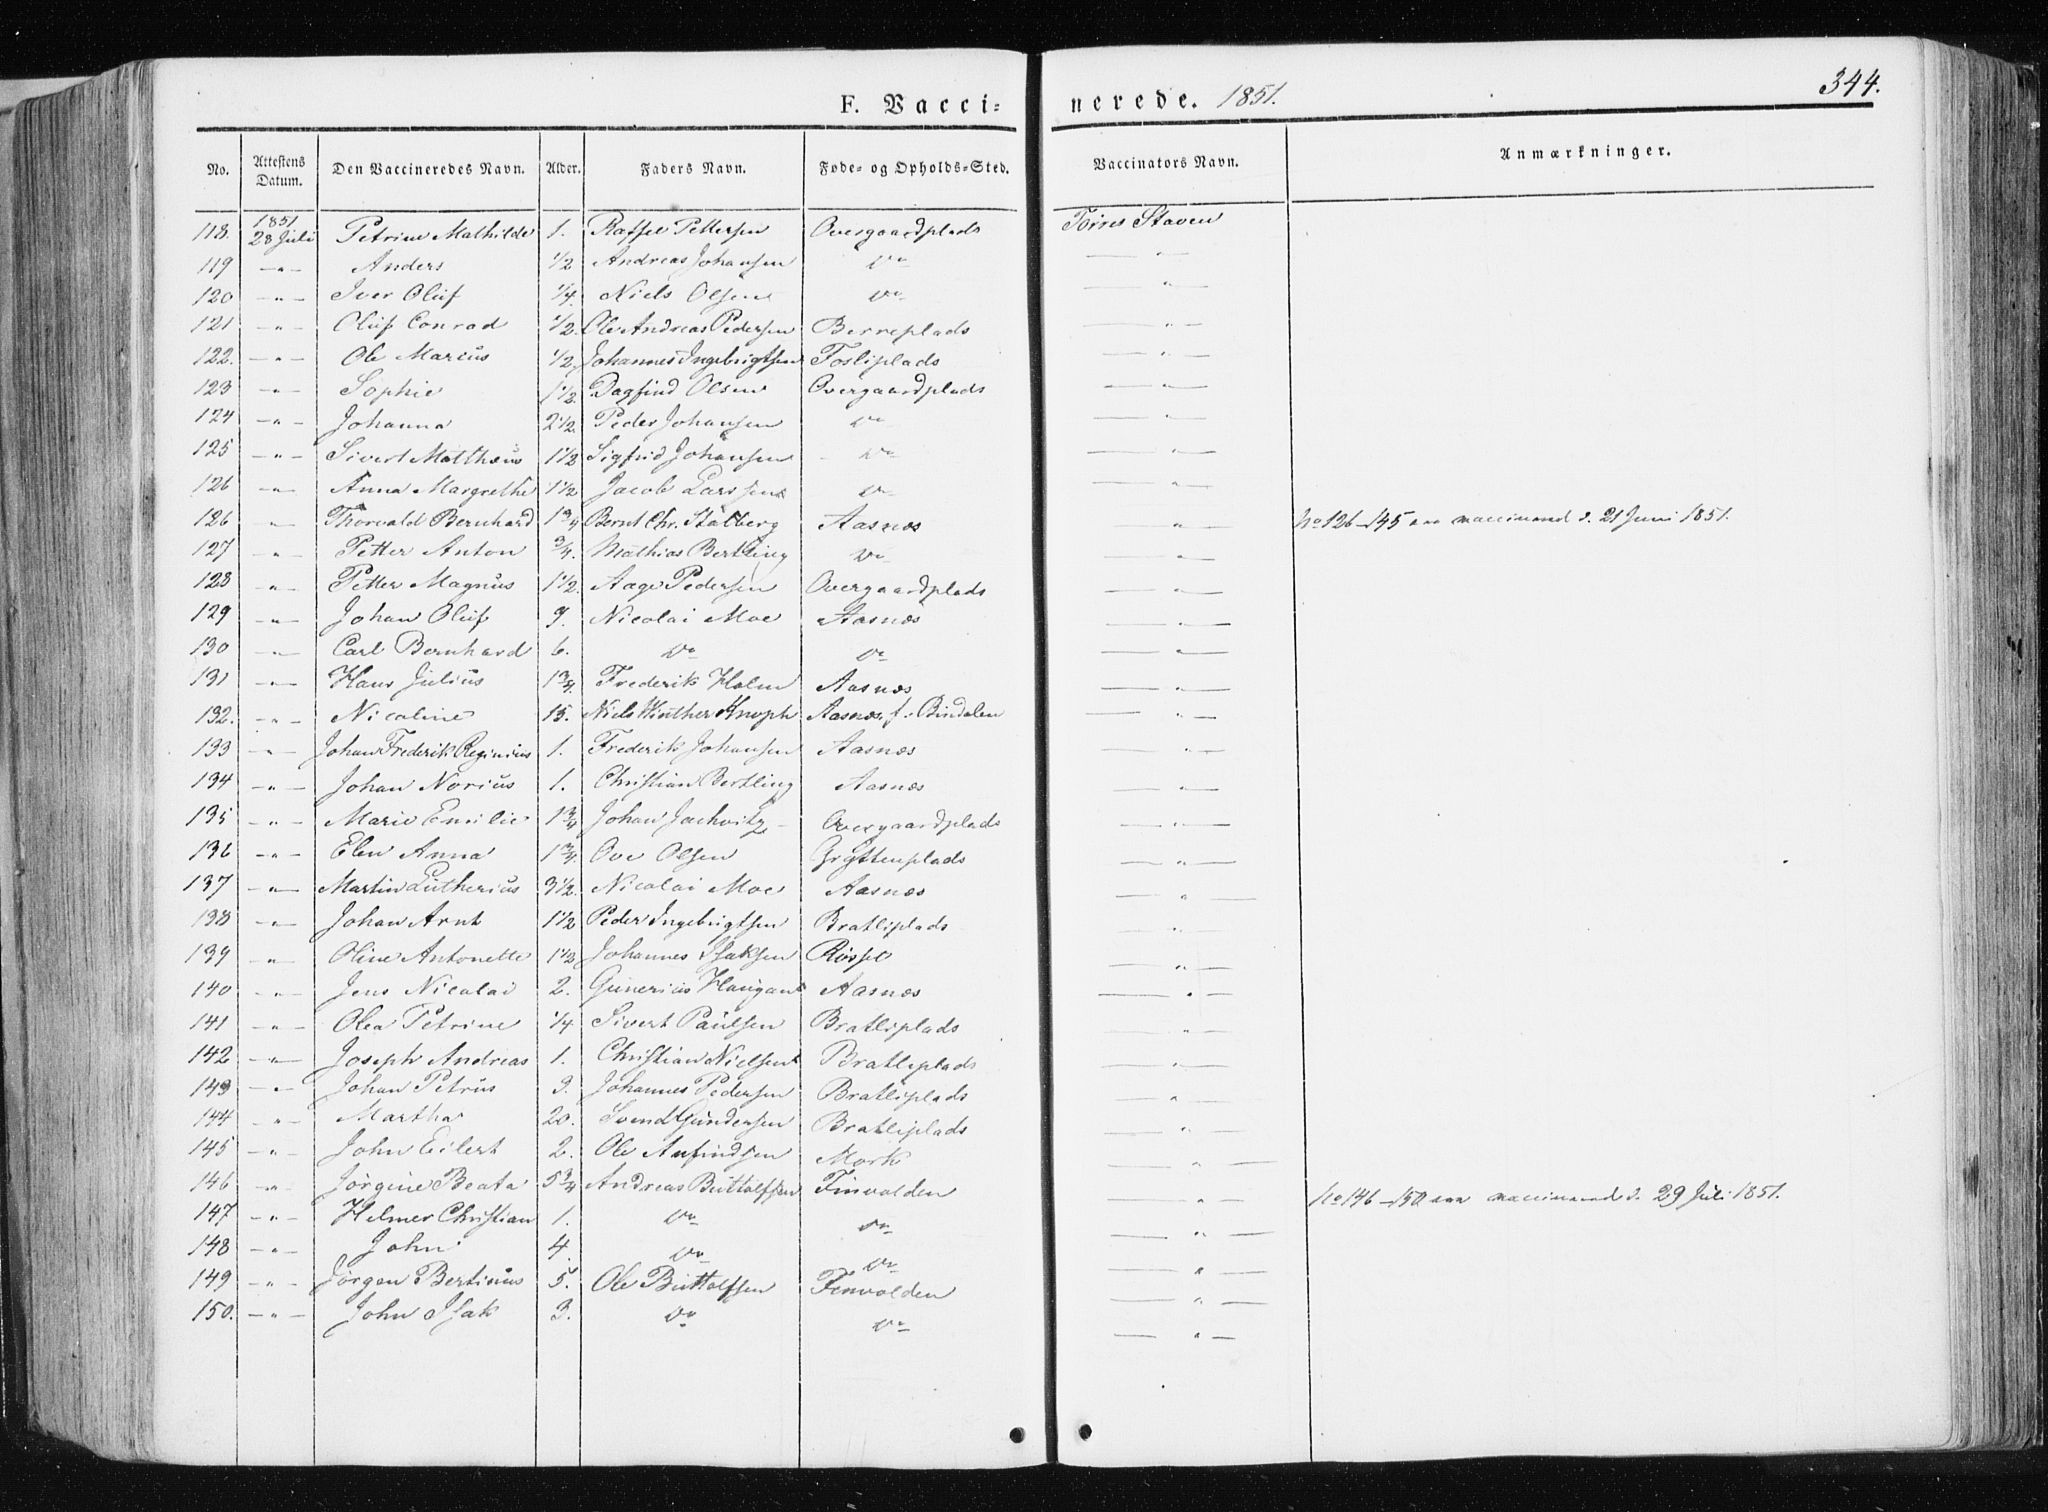 344.
F. Vacci= nerede. 1851.
No. Attestens Datum. Den Vaccineredes Navn. Alder. Faders Navn. Føde= og Opholds=Sted. Vaccinators Navn. Anmærkninger.
118. 1851 28 Juli Petrine Mathilde 1. Pettersen Overgaardplads Torres Staven
119 —„— Anders 1/2 Andreas Johansen Do —„—
120 —„— Iver Oluf 1/4. Niels Olsen Do —„—
121 —„— Oluf Conrad 1/2. Ole Andreas Pedersen Berreplads —„—
122. —„— Ole Marius 1/2. Johannes Ingebrigtsen Fosliplads —„—
123 —„— Sophie 1 1/2 Dagfind Olsen Overgaardplads —„—
124 —„— Johanna 2 1/2. Peder Johansen Do —„—
125 —„— Sivert Matthæus 1 1/2 Sigfrid Johansen Do —„—
126 —„— Anna Margrethe 1 1/2 Jacob Larssen Do —„—
126 „— Thorvald Bernhard 1 3/4 Bernt Chr. Stalberg Aasnæs —„— No 126–145 ere vaccinered d. 21 Juni 1851.
127 —„— Petter Anton 3/4. Mathias Bertling Do —„—
128 —„— Petter Magnus 1 1/2. Aage Pedersen Overgaardplads —„—
129 —„— Johan Oluf 9. Nicolai Moe Aasnæs —„—
130 —„— Carl Bernhard 6. Do Do —„—
131 —„— Hans Julius 1 3/4. Frederik Holm Aasnæs —„—
132. —„— Nicoline 15. Niels Winther Knoph Aasnæs, f: Bindalen —„—
133 —„— Johan Frederik Reginius 1. Frederik Johansen Aasnæs —„—
134 —„— Johan Norius 1. Christian Bertling Aasnæs —„—
135 —„— Marie Emilie 1 3/4 Johan Overgaardplads —„—
136 —„— Elen Anna 1 3/4. Ove Olsen Gryttenplads —„—
137 —„— Martin Lutherius 3 1/2. Nicolai Moe Aasnæs —„—
138 —„— Johan Arnt 1 1/2 Peder Ingebrigtsen Bratliplads —„—
139 —„— Oline Antonette 1 1/2 Johannes Isaksen Røsset —„—
140 —„— Jens Nicolai 2. Gunerius Haugan Aasnæs —„—
141 —„— Olea Petrine 1/4 Sivert Paulsen Bratliplads —„—
142 —„— Joseph Andreas 1. Christian Nielsen Bratliplads —„—
143 —„— Johan Petrus 3. Johannes Pedersen Bratliplads —„—
144 —„— Martha 20. Svend Gundersen Bratliplads —„—
145 —„— John Eilert 2. Ole Anfindsen Mork —„—
146 —„— Jørgine Beata 5 3/4 Andreas Buttolfsen Finvolden —„— No 146–150 ere vaccinered d. 29 Juli 1851.
147 —„— Helmer Christian 1. Do Do —„—
148 —„— John 4. Do Do —„—
149 —„— Jørgen Bertinus 5. Ole Buttolfsen Finvolden —„—
150. —„— John Isak 3. Do Do —„—